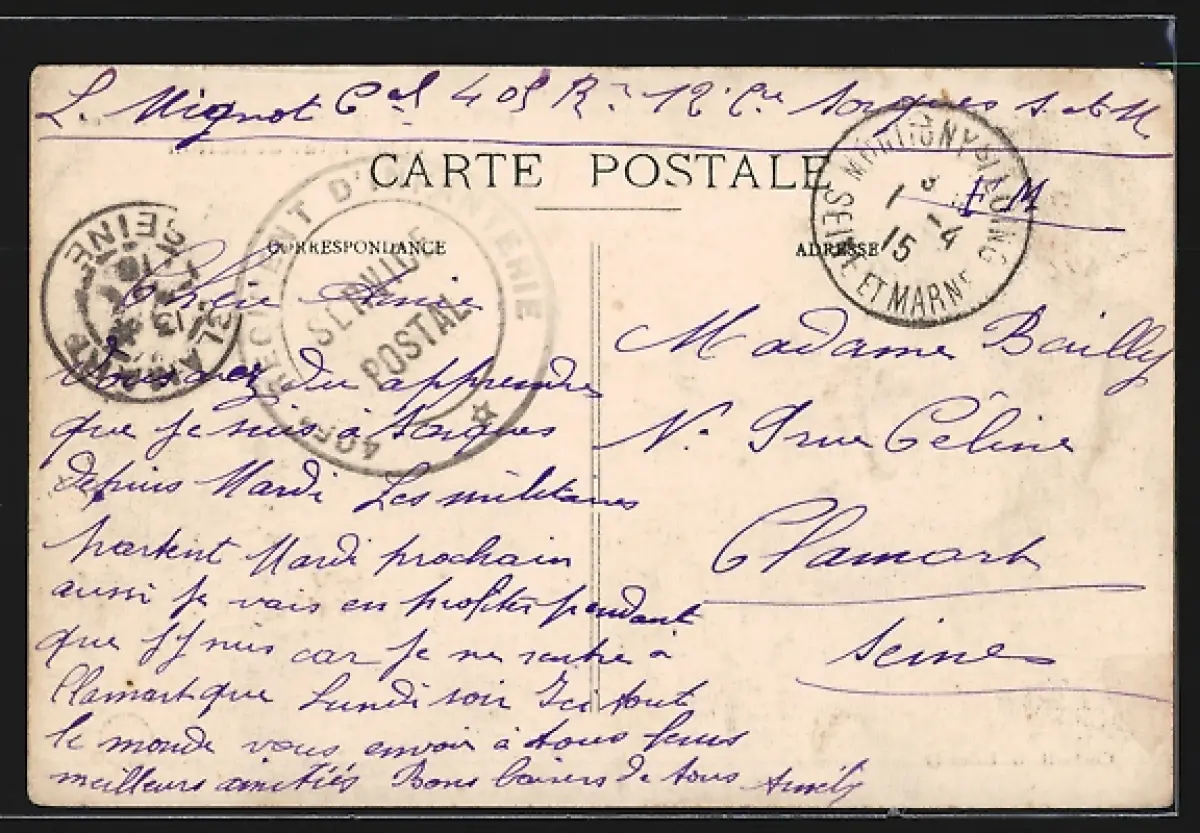 L. Mignot Cal 405 R. 12e Cie Sorgues S. et M
CARTE POSTALE
F M
CORRESPONDANCE
ADRESSE
SEINE ET MARNE
15
SERVICE
POSTAL
REGIMENT D'INFANTERIE
SEINE
Chère
Vous avez du apprendre
que je suis à Sorgues
depuis Mardi Les militaires
partent Mardi prochain
aussi je vais en profiter pendant
que j'y suis car je ne rentre à
Clamart que Lundi soir Ici tout
le monde vous envoie à tous leurs
meilleurs amitiés Bons baisers de tous
Madame Bailly
N° 9 rue Céline
Clamart
Seine